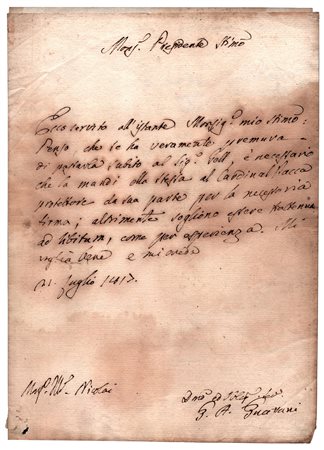 Monsr. Presidente Stimo
Ecco servito all'istante Monsigr. mio stimo:
Penso che se ha veramente premura
di passarla subito al Sigr. Coll. è necessario
che la mandi ella stessa al Cardinal Pacca
protettore da sua parte per la necessaria
firma; altrimente sogliono essere trattenute
ad libitum, come per esperienza. Mi
voglia bene e mi creda
21. Luglio 1817.
Monsr. Nicolai
G. A. Guerrani